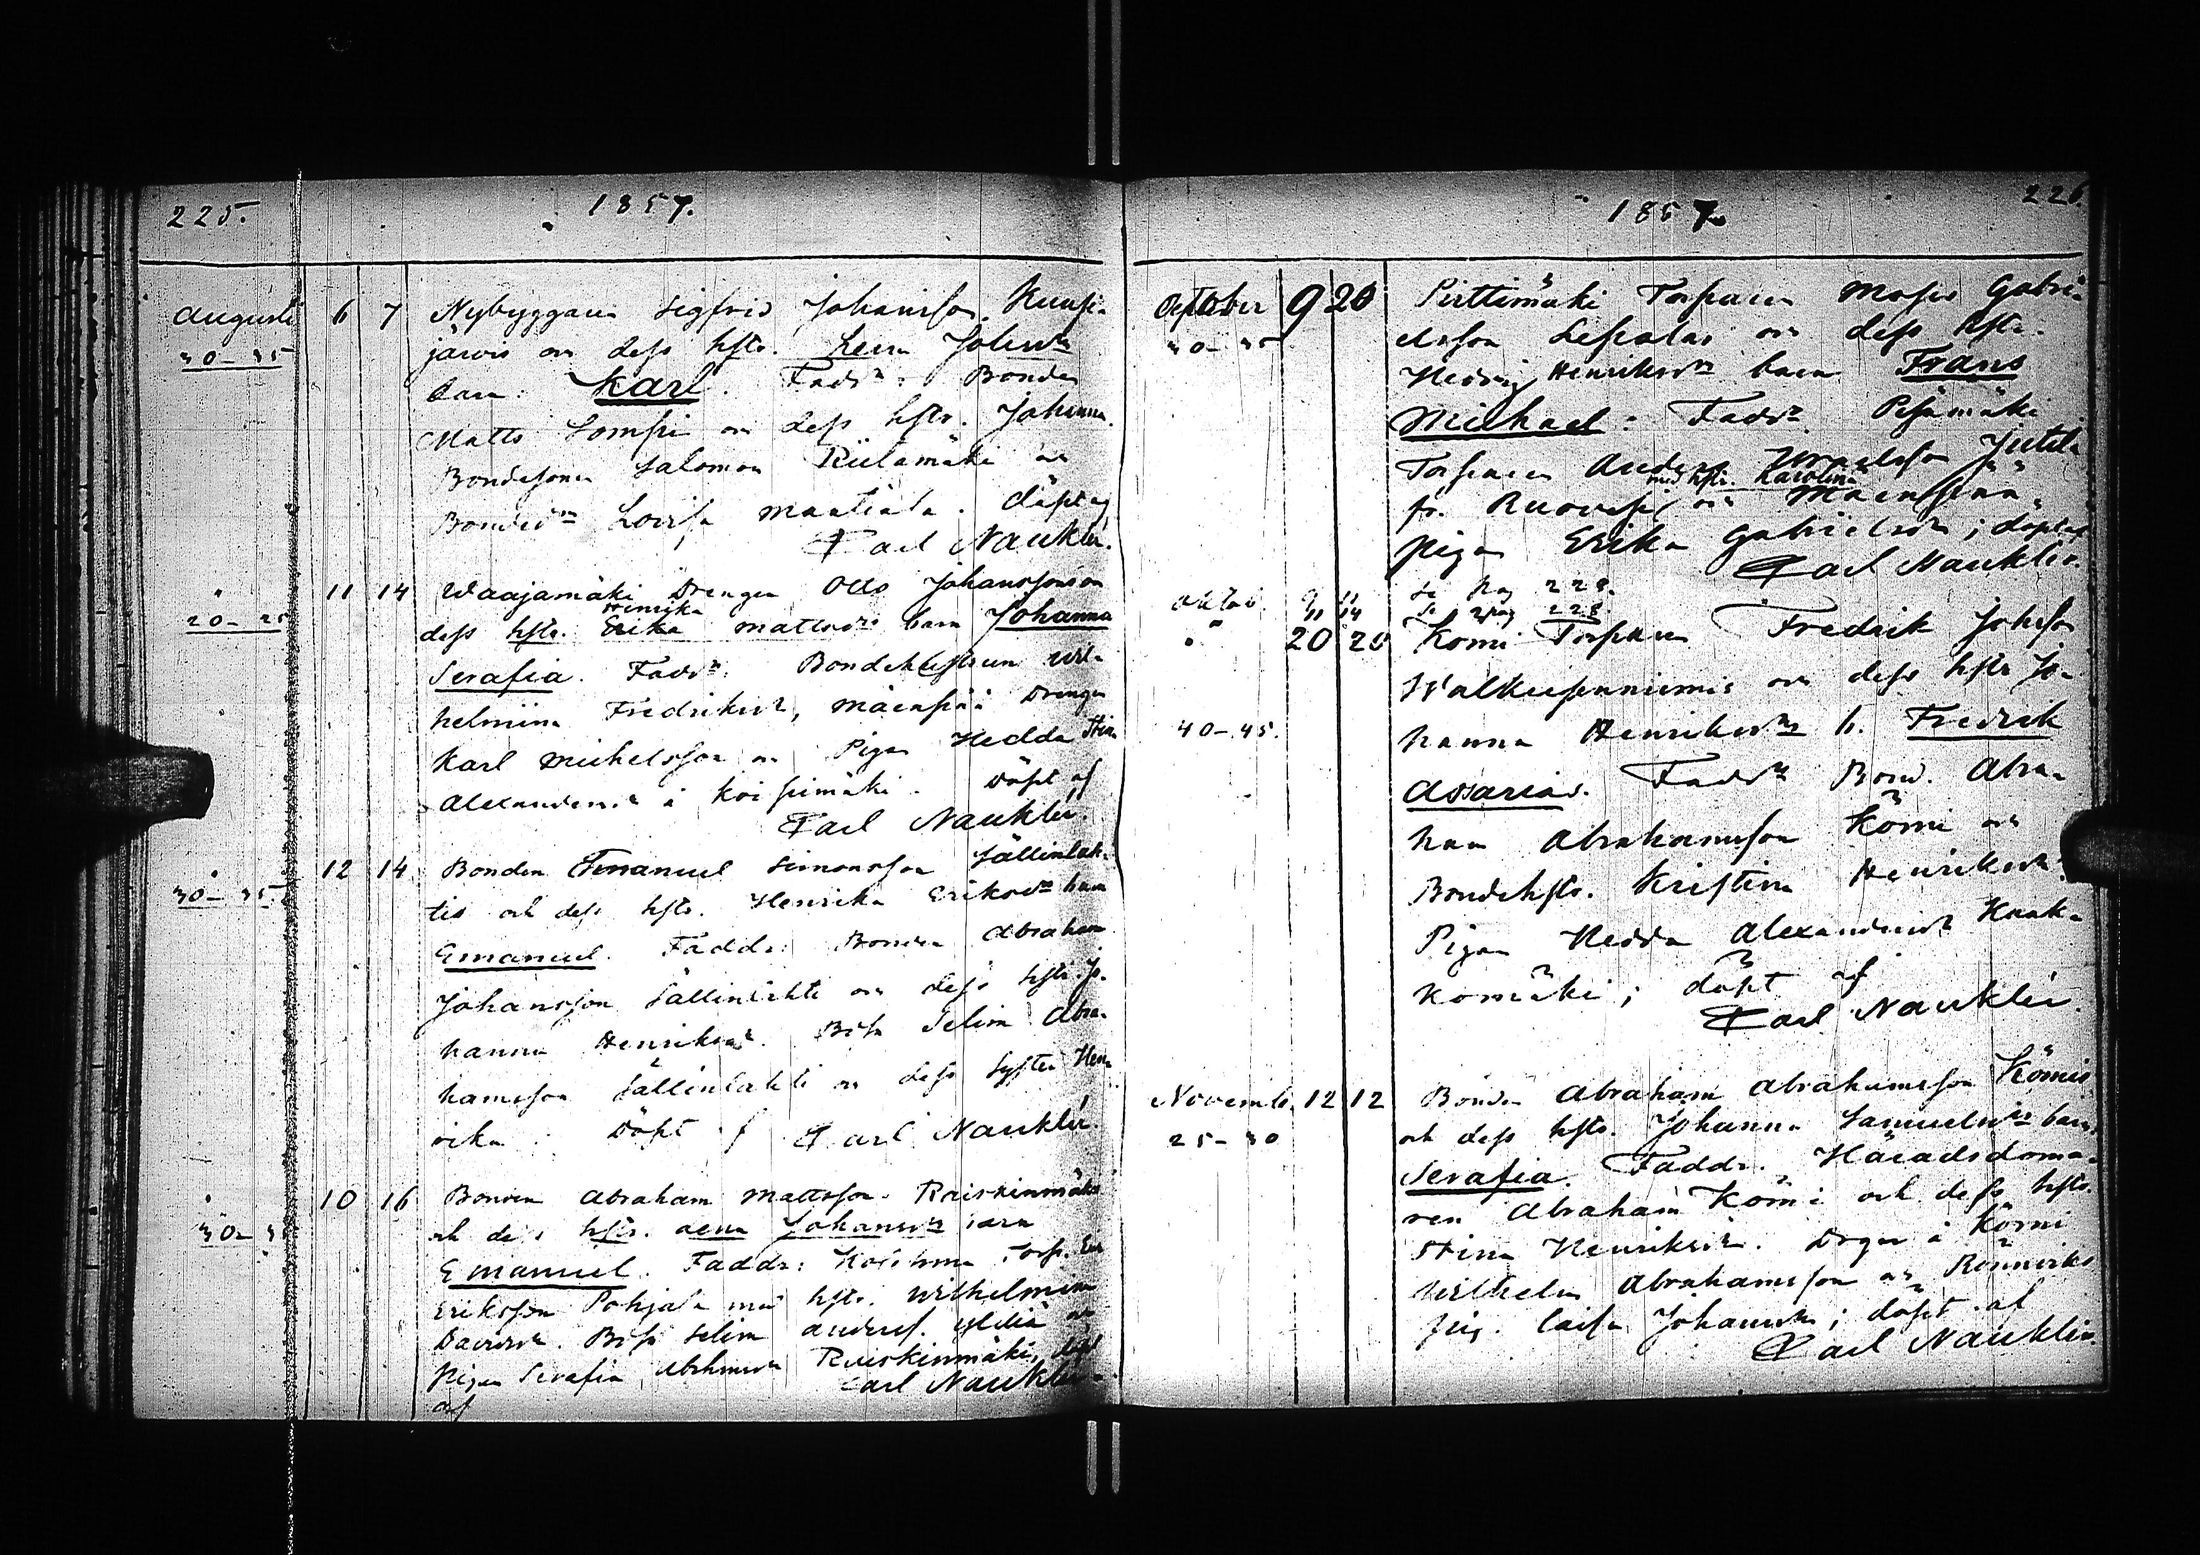 225.
1857.
Augusti 6 7 Nybyggaren Sigfrid Johansson Kuusi-
30-35 järvis och dess hstr. Lena Johsdr
barn: Karl. Faddr: Bonden
Matts Lomppi och dess hstr. Johanna.
Bondesonen Salomon Riitamäki och
Bondedr Lovisa Maatiala. döpt af
Carl Nauklér.
" 11 14 Waajamäki Drengen Otto Johanssons och
20-25 dess hstr. Erika Henrika Mattsdrs barn Johanna
Serafia. Faddr: Bondehustrun Wil-
helmina Fredriksdr, Mäenpää Drengen
Karl Michelsson och Pigan Hedda Stina
Alexandersdr i Koipimäki. Döpt af
Carl Nauklér.
" 12 14 Bonden Emanuel Simonsson Sällinlah-
30-35 tis och dess hstr. Henrika Eriksdrs barn
Emanuel. Faddr: Bonden Abraham
Johansson Sällinlahti och dess hstr. Jo-
hanna Henriksdr. Bdsn Selim Abra-
hamsson Sällinlahti och dess Syster Hen-
rika. Döpt af Carl Nauklér.
" 10 16 Bonden Abraham Mattsson Ruiskinmäkis
30-3 och dess hstr. Lena Johansdrs barn
Emanuel. Faddr: Torp.
Eriksson Pohjala med hstr. Wilhelmina
Davidsdr. Bdsn Selim Anderss. Yliliä och
Pigan Serafia Abrahmsdr Ruiskinmäki, döpt
af Carl Nauklér.
226.
1857.
October 9 20 Pirttimäki Torparen Moses Gabri-
30-35 elsson Lepolas och dess hstr.
Hedvig Henriksdrs barn Frans
Michael: Faddr. Pesämäki
Torparen Anders Israelsson Jutila
med hstr. Karolina
fr. Ruovesi och Mäenpään
pigan Erika Gabrielsdr; döpt af
Carl Nauklér.
Oktob. 9 11 Se Pag 228.
" 11 14 Se pag 228
" 20 25 Kömi Torparen Fredrik Johsson
Walkeisenniemis och dess hstr Jo-
40-45. hanna Henriksdrs b. Fredrik
Assarias. Faddr Bond. Abra-
ham Abrahamsson Kömi och
Bondehstr. Kristina Henriksdr.
Pigan Hedda Alexandersdr Kauk-
komäki; döpt af
Carl Nauklér.
Novemb. 12 12 Bonden Abraham Abrahamsson Kömis
25-30 och dess hstr. Johanna Samuelsdrs barn
Serafia. Faddr. Häradsdoma-
ren Abraham Kömi och dess hstr.
Stina Henriksdr. Drgn i Kömi
Wilhelm Abrahamsson och Rönnviks
pig. Caisa Johansdr; döpt af
Carl Nauklér.